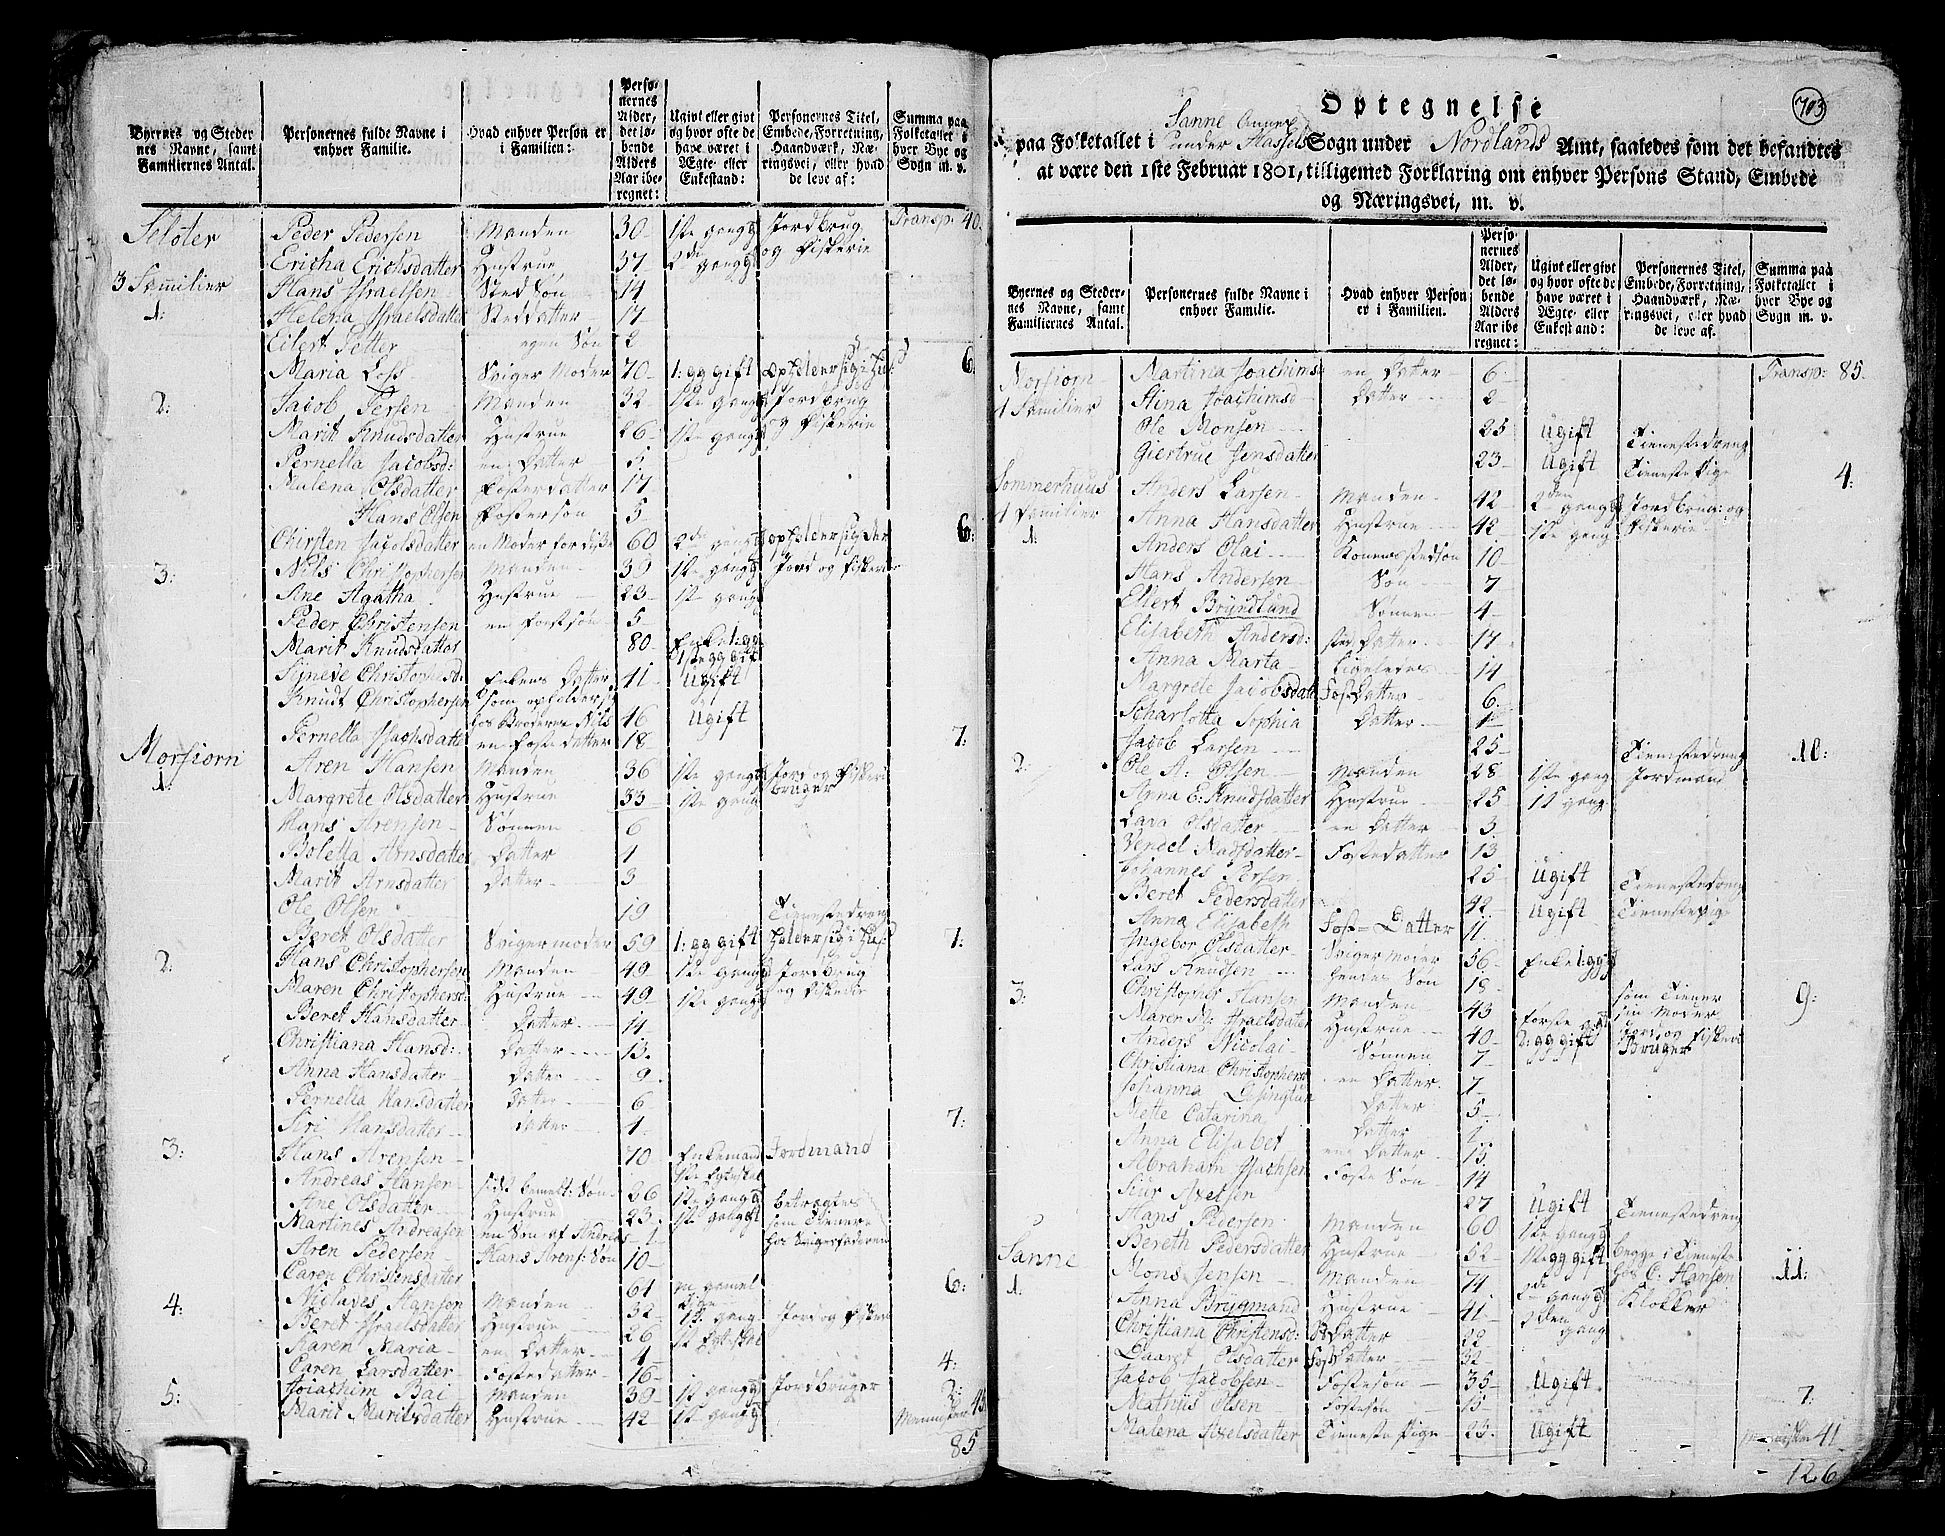 Byernes og Steder nes Navne, samt Familiernes Antal.
Personernes fulde Navne i enhver Familie.
Hvad enhver Person er i Familien:
Perso- nernes Alder, det lø- bende Alders Aar ibe- regnet:
Ugivt eller givt og hvor ofte de have været i Ægte- eller Enkestand:
Personernes Titel, Embede, Forretning, Haandværk, Næ- ringsvei, eller hvad de leve af:
Summa paa Folketallet i hver Bye og Sogn m. v.
Transp: 40.
Seloter
3 Familier
1: Peder Pedersen Manden 30 1ste gang g Jordbrug
Ericha Erichsdatter Hustrue 37 2de gang g og Fiskerie
Hans Israelsen Sted Søn 14
Helena Israelsdatter Steddatter 17
Eilert Petter egen Søn 2
Maria Loss Sviger Moder 70 1: gg gift 6
2: Jacob Persen Manden 32 1ste gang g Jordbrug
Marit Knudsdatter Hustrue 26 1ste gang g og Fiskerie
Pernella Jacobsd: en Datter 5
Malena Olsdatter Fosterdatter 17
Hans Olsen Fosterson 5
Chirsten Jacobsdatter en Moder for disse 60 2de gang 6:
3: Nils Christophersen Manden 39 1ste gang g Jord og Fiskerie
Ane Agatha Hustrue 23 1ste gang g
Peder Christensen en Fostsøn 5
Marit Knudsdatter 80 Enke 1: gg
Sineve Christophersd: Enkens Datter 41 Ugift
Knudt Christophersen hos Broderen Nils 46 Ugift
Pernella Isachsdatter en Fostedatter 18 7:
Morsiorn
1: Aren Hansen Manden 36 1ste gang g Jord og Fiskeri
Margrete Olsdatter Hustrue 33 1ste gang bruger
Hans Arensen Sønnen 6
Boletta Arnsdatter Datter 4
Marit Arnsdatter Datter 3
Ole Olsen 19 Tienestedreng
Beret Olsdatter Svigermoder 59 1: gg gift 7:
2: Hans Christophersen Manden 49 1ste gang g Jordbrug
Maren Christophersd: Hustrue 49 1ste gang g og Fiskerie
Beret Hansdatter Datter 14
Christiana Hansd: Datter 13
Anna Hansdatter Datter 9
Pernella Hansdatter Datter 6
Siri Hansdatter datter 4 7:
3: Hans Arensen 70 Enkemand Jordmand
Andreas Hansen sidst bemelt: Søn 26 1ste gang g betragtes
Ane Olsdatter Hustrue 23 som Tienere
Martines Andreasen en Søn af Andreas 1 hos Svigerfaderen
Aren Pedersen Hans Arens: Søn 10
Caren Christensdatter 61 en gamel Pige 6:
4: Niclaves Hanson Manden 32 1s: gang Jord og Fiskeri
Beret Israelsdatter Hustrue 26
Karen Maria en Datter 4
Caren Larsdatter Fostedatter 16 4:
5: Joiachim Bai Manden 39 1st gang g Jordbruger 2:
Marit Maritsdatter Hustrue 42 1st gang g Mennisker 45
85
703
Optegnelse
paa Folketallet i Sanne Annex under Hassels Sogn under Nordlands Amt, saaledes som det befandtes
at være den 1ste Februar 1801, tilligemed Forklaring om enhver Persons Stand, Embede
og Næringsvei, m. v.
Byernes og Steder- nes Navne, samt Familiernes Antal.
Personernes fulde Navne i enhver Familie.
Hvad enhver Person er i Familien.
Perso- nernes Alder, det lø- bende Alders Aar ibe regnet:
Ugivt eller givt og hvor ofte de have været i Ægte- eller Enkestand:
Personernes Titel, Embede, Forretning, Haandværk, Næ- ringsvei, eller hvad de leve af.
Summa paa Folketallet i hver Bye og Sogn m. v.
Transp: 85.
Morsiorn Martina Joachimsd en Datter 6
1 Familier Stina Joachimsd Datter 2
Ole Monsen 25 Ugift Tienestedreng
Giertrue Jensdatter 23 Ugift Tieneste Pige 4:
Sommerhuus Anders Larsen Manden 42 2den gang g Jordbrug: og
1 Familier Anna Hansdatter Hustrue 42 1ste gang Fiskerie
1: Anders Olai Konens stedson 10
Hans Andersen Søn 7
Ellert Bryndlund Sønnen 4
Elisabeth Andersd: sted Datter 17
Anna Marta Ligeledes 14
Margrete Jacobsdatt Fost Datter 6
Scharlotta Sophia Datter 1
Jacob Larsen 25 Tienestedreng 10:
2: Ole A: Olsen Manden 28 1ste gang Jordmand
Anna E: Knudsdatter Hustrue 25 1st gang
Lava Olsdatter en Datter 3
Vendel Madsdatter Fostedatter 13
Johannes Persen 25 Ugift Tienestedreng
Beret Pedersdatter 42 Ugift Tienestepige
Anna Elisabeth Fost= Datter 11
Ingebor Olsdatter Sviger moder 56 Enke 1: gg g
Lars Knudsen hendes Søn 18 som Tiener sin Moder 9:
3: Christopher Hansen Manden 43 første g Jord og Fiskeri
Maren M: Israelsdatter Hustrue 40 2: gg gift Bruger
Anders Nicolai Sønnen 7
Christiana Christophersd en Datter 7
Johanna Datter 5
Mette Catarina Datter
Anna Elisabet en Datter 15
Abraham Isachsen Foste Søn 14
Siur Axelsen 27 Ugift Tienestedreng
Hans Pedersen Manden 60 1ste gang g
Bereth Pedersdatter Hustrue 52 1ste gg gift begge i Tieneste hos C: Hansen 11:
Sanne
1: Mons Jensen Manden 74 2de gang g Klokker
Anna Brygmand Hustrue 41 2den gang
Christiana Christensd: Datter 22
Daaret Olsdatter Fost Datter 32
Jacob Jacobsen Fosteson 35 Ugift
Mathiis Olsen Fosteson 15 7:
Malena Axelsdatter Tieneste Pige 23 Ugift 41
126